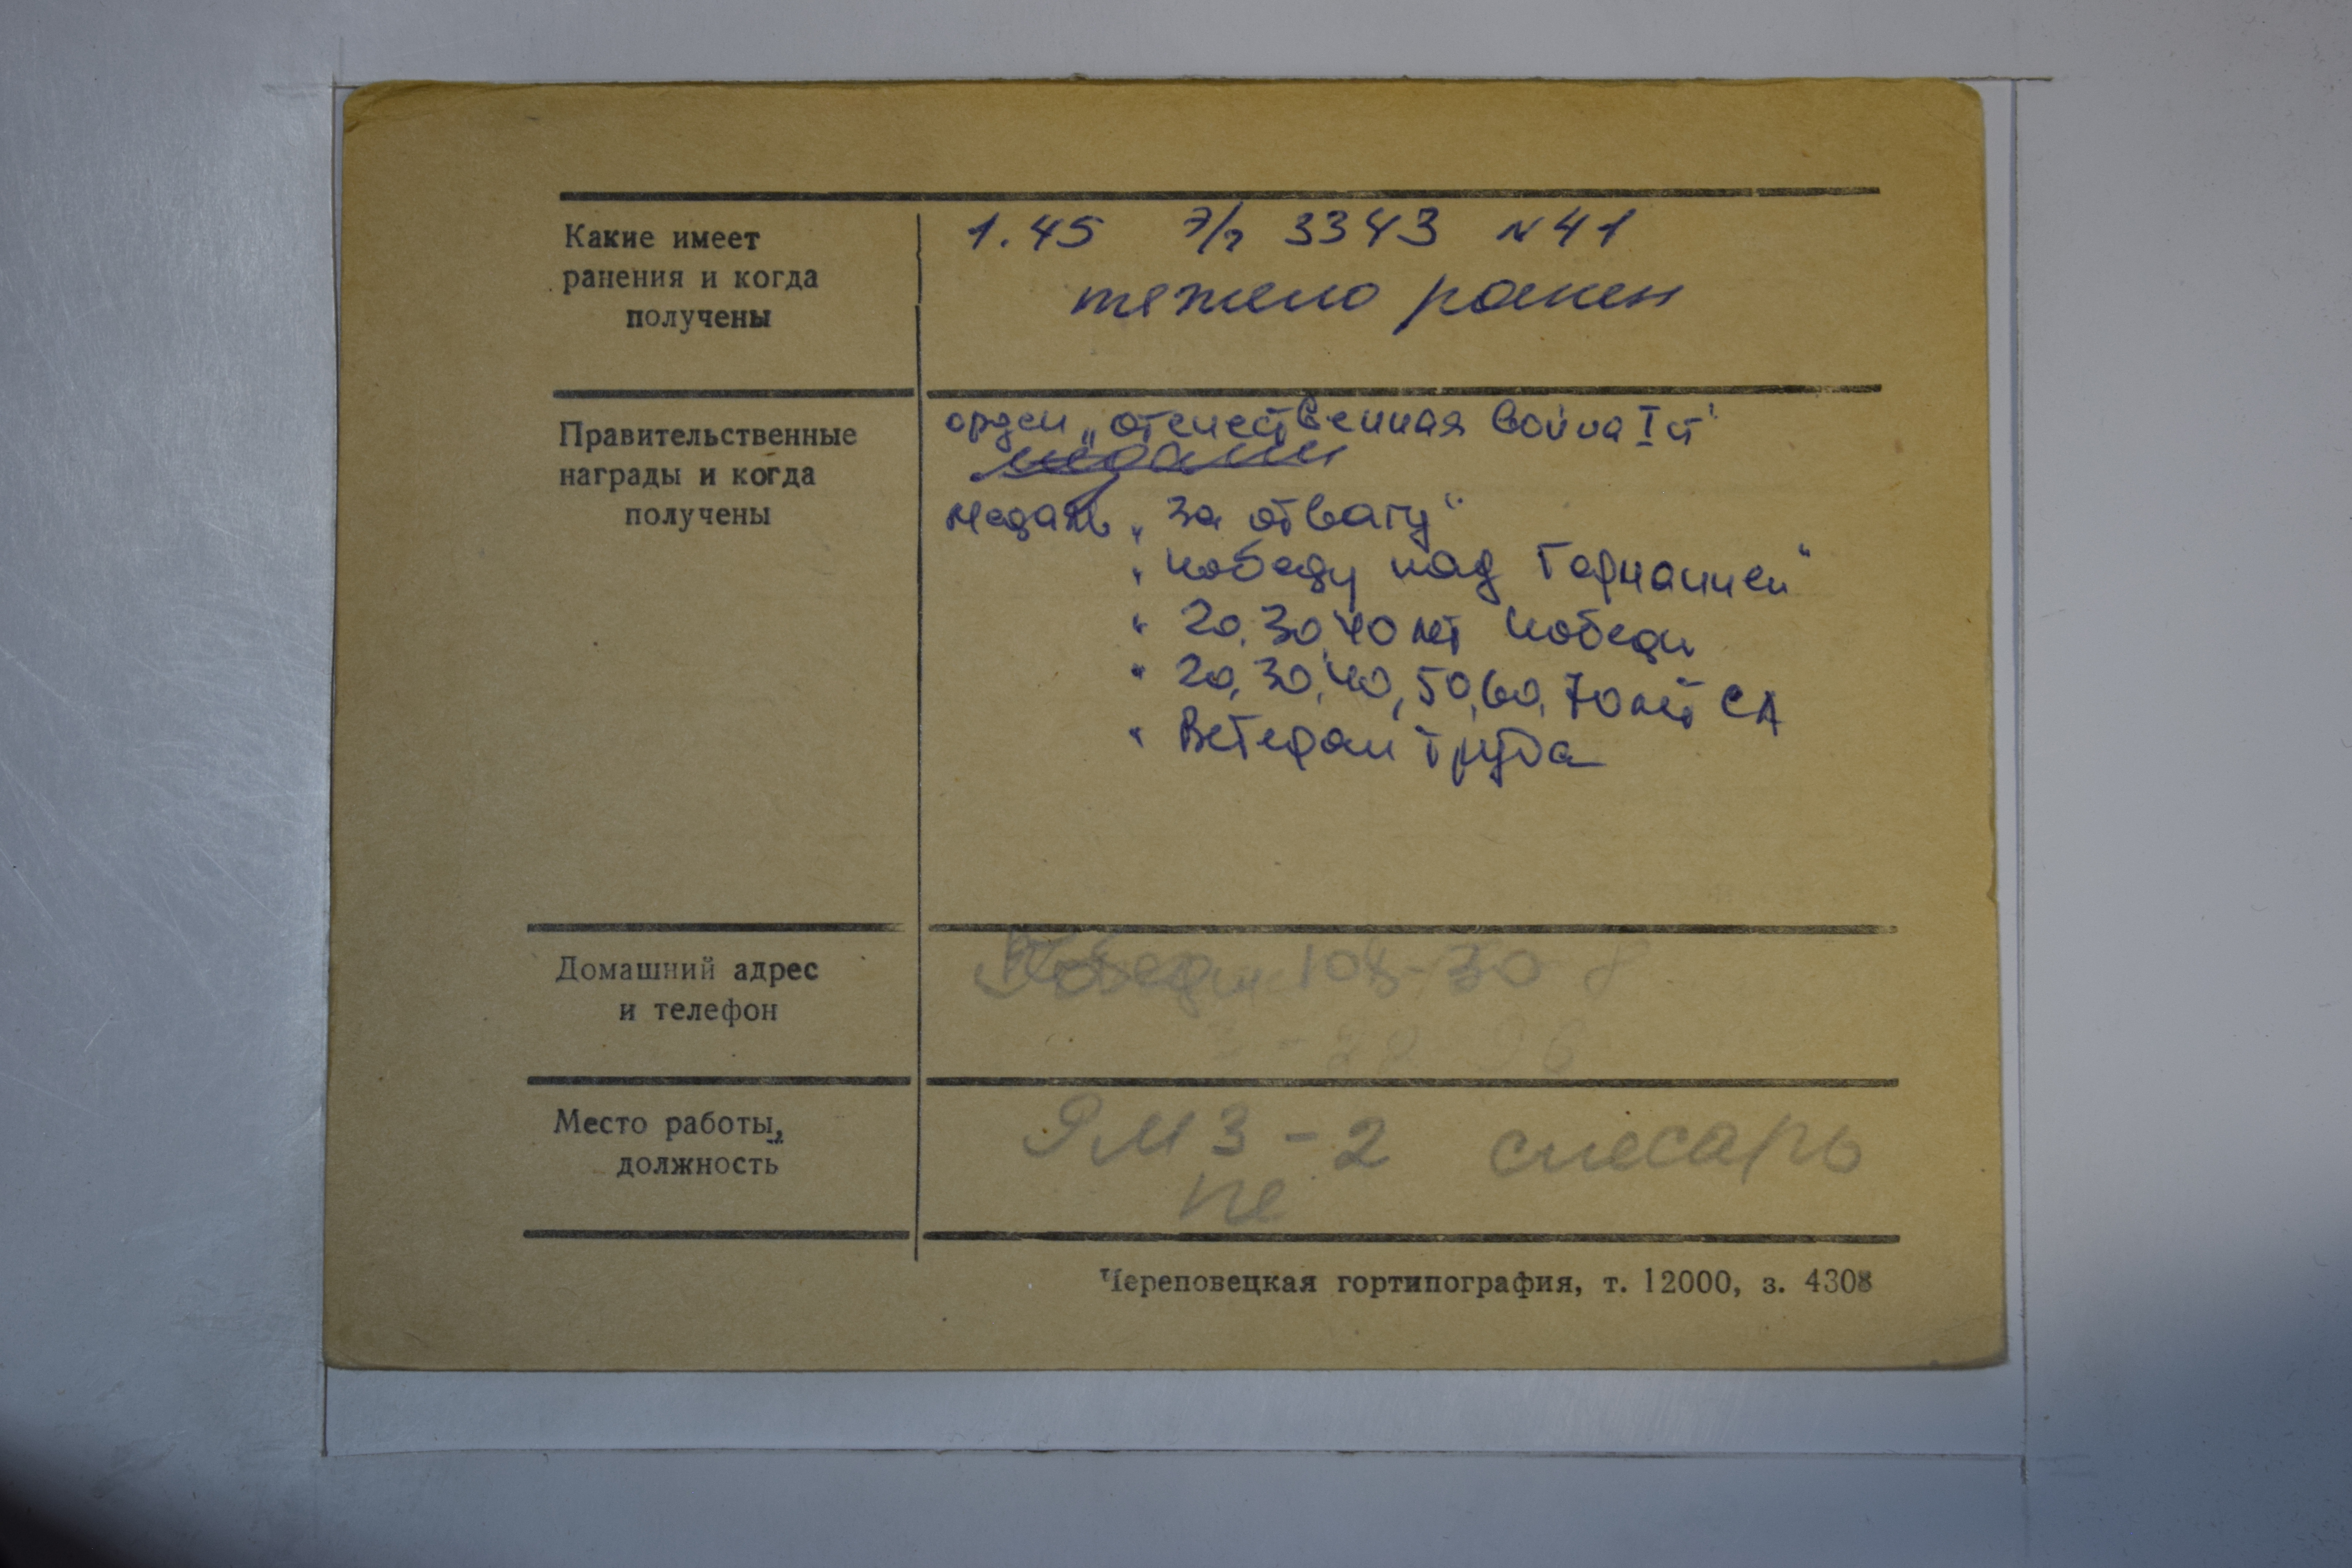 Какие имеет
ранения и когда
получены
1.45 э/г 3343 N 41
тежело ранен
Правительственные
награды и когда
получены
орден „отечественная война I ст"
медали
медаль „За отвагу"
„ победу над Германией"
" 20, 30, 40 лет победы
" 20, 30, 40, 50, 60, 70 лет СА
" Ветеран труда
Домашний адрес
и телефон
Победы 108-30
Место работы,
должность
ЯМЗ-2 слесарь
Череповецкая гортипография, т. 12000, з. 4308